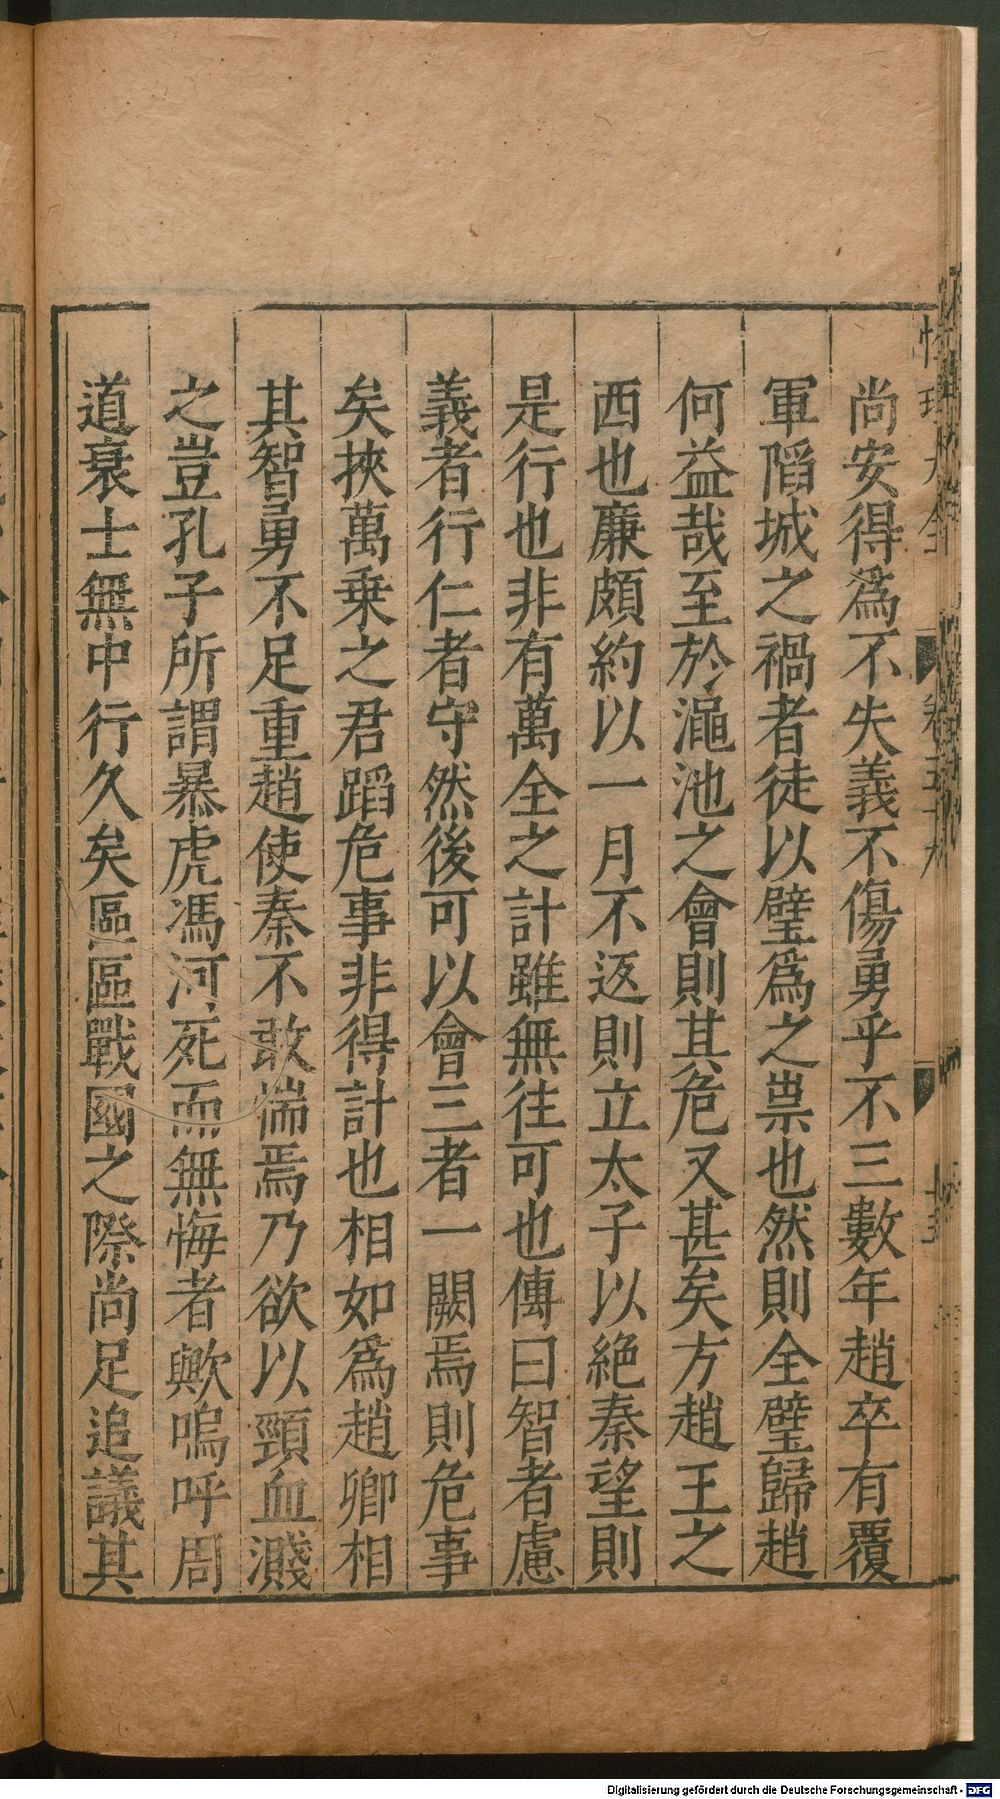 尚安得爲不失義不傷勇乎不三數年趙卒有覆
軍陷城之禍者徒以璧爲之祟也然則全璧歸趙
何益哉至於澠池之會則其危又甚矣方趙王之
西也廉頗約以一月不返則立太子以絶秦望則
是行也非有萬全之計雖無往可也傳曰智者慮
義者行仁者守然後可以會三者一闕焉則危事
矣挾萬乗之君蹈危事非得計也相如爲趙卿相
其智勇不足重趙使秦不敢惴焉乃欲以頸血濺
之豈孔子所謂暴虎馮河死而無悔者歟嗚呼周
道衰士無中行久矣區區戰國之際尚足追議其
Digitalisierung gefördert durch die Deutsche Forschungsgemeinschaft - DFG